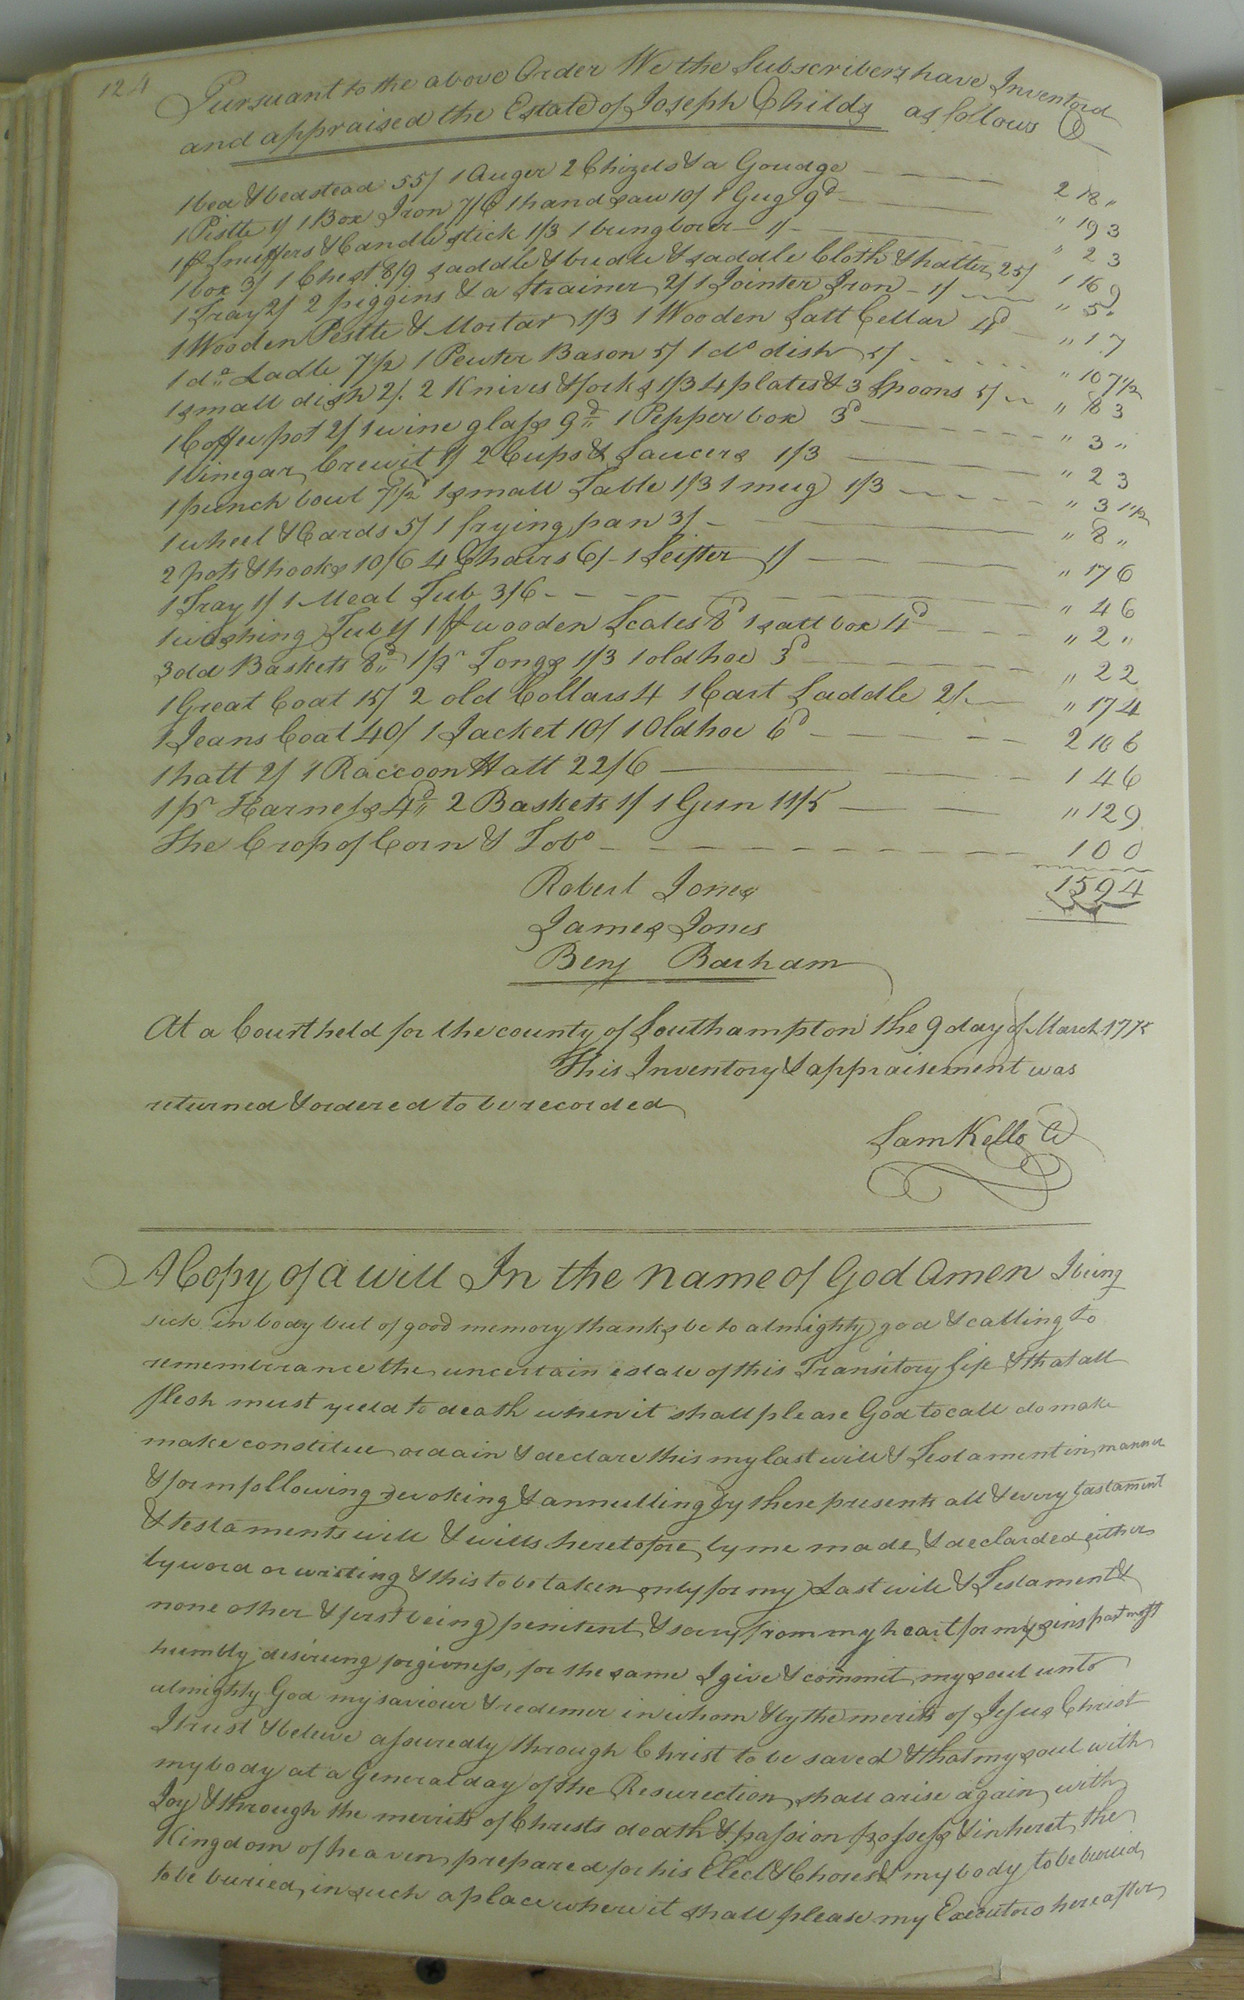 124
Pursuant to the above Order We the Subscribers have Inventord
and appraised the Estate of Joseph Childs as follows
1 bed & bedstead 55/ 1 Auger 2 Chizels & a Goudge 2 18 "
1 Pistle 1/ 1 Box Iron 7/6 1 hand saw 10/ 1 Gug 9d " 19 3
1 pr Snuffers & Candlestick 1/3 1 bung borer 1/ " 2 3
1 box 3/ 1 Chest 8/9 saddle & bridle & saddle Cloth & halter 25/ 1 16 9
1 Tray 2/ 2 piggins & a Strainer 2/ 1 Jointer Iron 1/ " 5 "
1 Wooden Pestle & Mortar 1/3 1 Wooden Salt Cellar 4d " 1 7
1 do Ladle 7½ 1 Pewter Bason 5/ 1 do dish 5/ " 10 7½
1 small dish 2/. 2 Knives & forks 1/3 4 plates & 3 Spoons 5/ " 8 3
1 Coffe pot 2/ 1 wine glass 9d 1 Pepper box 3d " 3 "
1 Vinegar Crewit 1/ 2 Cups & Saucers 1/3 " 2 3
1 punch bowl 7½ 1 small Table 1/3 1 mug 1/3 " 3 1½
1 wheel & Cards 5/ 1 frying pan 3/ " 8 "
2 pots & hooks 10/6 4 Chairs 6/ 1 Seifter 1/ " 17 6
1 Tray 1/ 1 Meal Tub 3/6 " 4 6
1 washing Tub 1/ 1 pr wooden Scales 8d 1 salt box 4d " 2 "
3 old Baskets 8d 1 pr Tongs 1/3 1 old hoe 3d " 2 2
1 Great Coat 15/ 2 old Collars 4 1 Cart Saddle 2/ " 17 4
1 Jeans Coat 40/ 1 Jacket 10/ 1 Old hoe 6d 2 10 6
1 hatt 2/ 1 Raccoon Hatt 22/6 1 4 6
1 pr Harness 4d 2 Baskets 1/ 1 Gun 11/5 " 12 9
The Crop of Corn & Tobo 1 0 0
15 9 4
Robert Jones
James Jones
Benj Barham
At a Court held for the county of Southampton the 9 day of March 1775
This Inventory & appraisement was
returned & ordered to be recorded
Sam Kello Cl
A Copy of a will In the name of God Amen I being
sick in body but of good memory thanks be to almighty god & calling to
rememberance the uncertain estate of this Transitory life & that all
flesh must yield to death when it shall please God to call do make
make constitue ordain & declare this my last will & Testament in manner
& form following revoking & annulling by these presents all & every testament
& testaments will & wills heretofore by me made & declarded either
by word or writing & this to be taken only for my Last will & Testament &
none other & first being penitent & sorry from my heart for my sins past most
humbly desireing forgivness, for the same I give & commit my soul unto
almighty God my saviour & redemer in whom & by the merits of Jesus Christ
I trust & beleive assuredly through Christ to be saved & that my soul with
my body at a general day of the Resurection shall arise again with
Joy & through the merits of Christs death & passion possess & inheret the
Kingdom of heaven prepared for his Elect & Chosen & my body to be buried
to be buried in such a place where it shall please my Executors hereafter